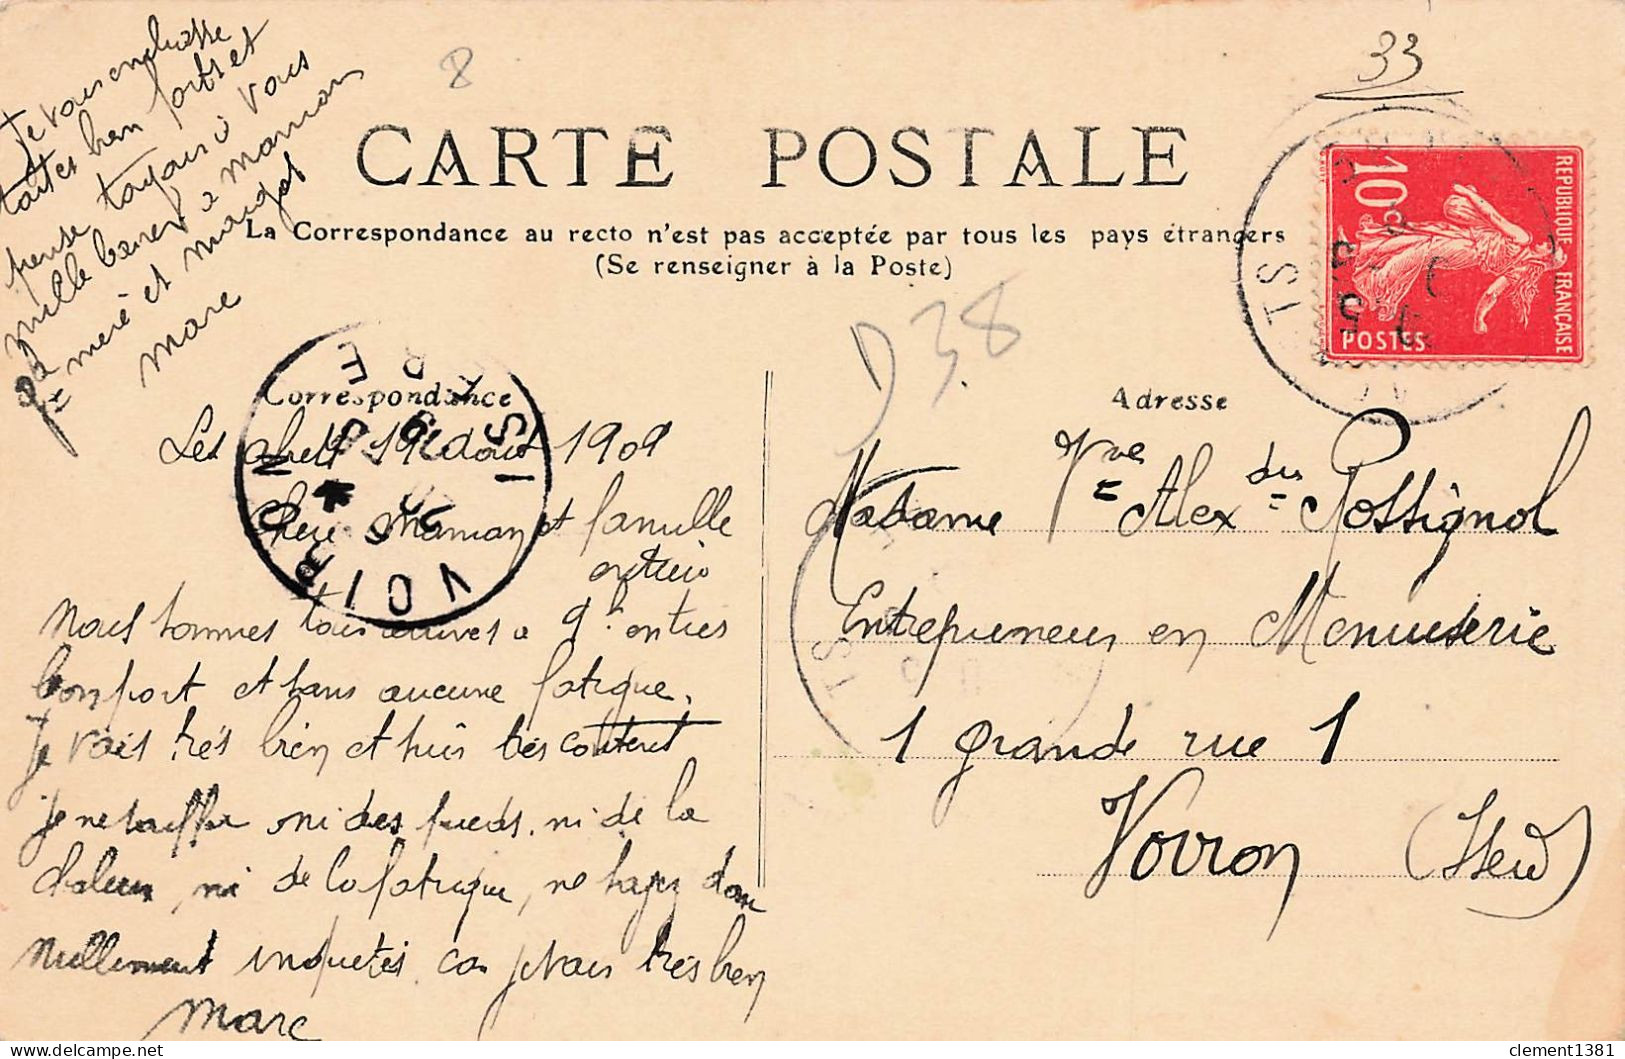 Je vous embrasse
toutes bien fort et
pense toujours à vous
mille baiser à maman
gd mère et margot
marc
8
33
CARTE POSTALE
La Correspondance au recto n'est pas acceptée par tous les pays étrangers
(Se renseigner à la Poste)
REPUBLIQUE FRANÇAISE
10c
POSTES
D 38
Correspondance
Les 19 août 1909
chère Maman et famille
nous sommes tous arrivés a
bon port et sans aucune fatigue.
Je vais très bien et suis très content
je ne souffre ni des pieds, ni de la
chaleur, ni de la fatigue, ne soyez donc
nullement inquietes car je vais très bien
marc
VOIRON
ISERE
Adresse
Madame Vve Alex des Rossignol
Entrepreneur en Menuiserie
1 grande rue 1
Voiron (Isère)
clement1381